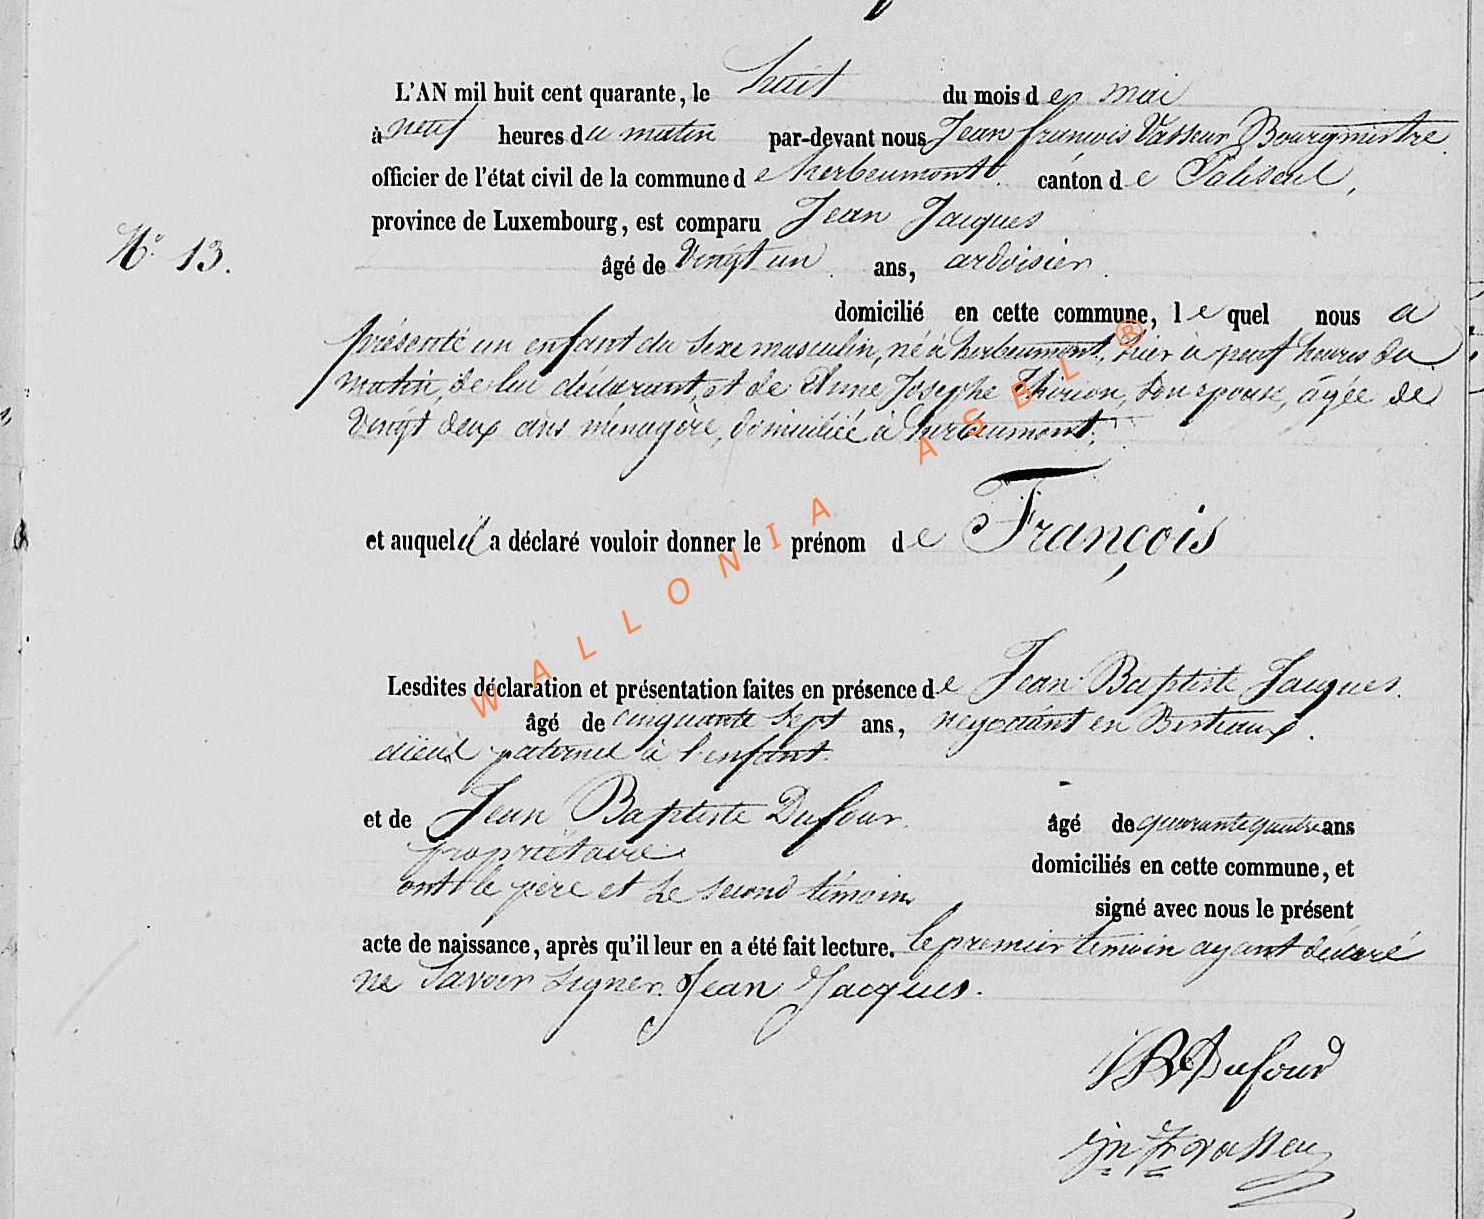 L'AN mil huit cent quarante, le huit du mois de mai
à neuf heures du matin par-devant nous Jean françois Vasseur Bourgmestre
officier de l'état civil de la commune de herbeumont canton de Paliseul,
province de Luxembourg, est comparu Jean Jacques
N° 13.
âgé de Vingt un ans, ardoisier
domicilié en cette commune, lequel nous a
présenté un enfant du sexe masculin, né à herbeumont, hier à neuf heures du
matin, de lui déclarant, et de Anne Josephe Thirion, son epouse, âgée de
Vingt deux ans ménagère, domiciliée à herbeumont,
et auquel il a déclaré vouloir donner le prénom de François
Lesdites déclaration et présentation faites en présence de Jean Baptiste Jacques
âgé de cinquante sept ans, negociant en Bestiaux.
aïeul paternel à l'enfant
et de Jean Baptiste Dufour âgé de quarante quatre ans
propriétaire
domiciliés en cette commune, et
ont le père et le second témoin
signé avec nous le présent
acte de naissance, après qu'il leur en a été fait lecture. le premier témoin ayant déclaré
ne Savoir signer. Jean Jacques.
JB Dufour
Jn Fr Vasseur
WALLONIA ASBL ®